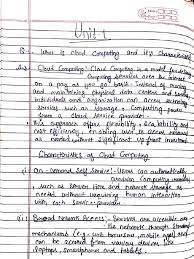 Unit-1
Q:- What is Cloud Computing and its Characteristics
Ans Cloud Computing: Cloud Computing is a model for delivering
Computing services over the internet
on a pay as you go basis. Instead of owning
and maintaining physical data centers and servers,
individuals and organization can access
services such as storage, computing power
from a cloud service provider.
This approach offers flexibility, scalability and
cost efficiency, enabling users to
as needed without significant up front investment
Characteristics of Cloud Computing
(i) On-Demand Self Service:- Users can automatically
computing services
such as server time and network storage as
needed without requiring human interaction
with each service provider.
(ii) Broad Network Access:- Services are accessible
over the network through standard
mechanisms (e.g. web browsers, mobile apps) and
can be accessed from various devices like
laptops, smartphones and tablets.